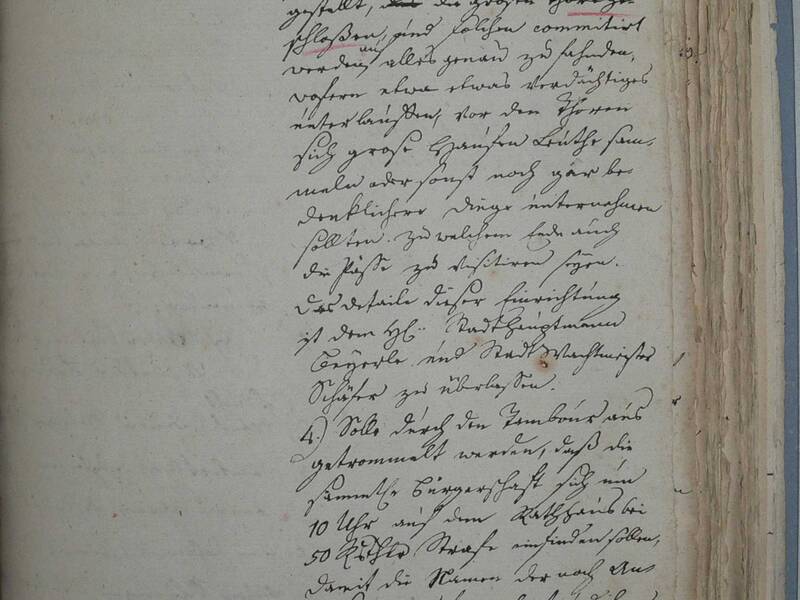 gestellt, die großen Thore ge-
schloßen, und solchen committirt
werden auf alles genau zu fahnden,
wofern etwa etwas verdächtiges
unterlauffen, vor den Thoren
sich große Haufen Leuthe sam-
meln oder sonst noch gar be-
denklichere Dinge unternehmen
sollten. Zu welchem Ende auch
die Pässe zu visitiren seyen.
Das detaile dieser Einrichtung
ist dem H. Stadthauptmann
Beyerle und Stadt Wachtmeister
Schäfer zu überlassen.
4.) Solle durch den Tambour aus
getrommelt werden, daß die
sammtle Bürgerschaft sich um
10 Uhr auf dem Rathhaus bei
50 Rthlr Strafe einfinden sollen,
damit die Namen der noch An-